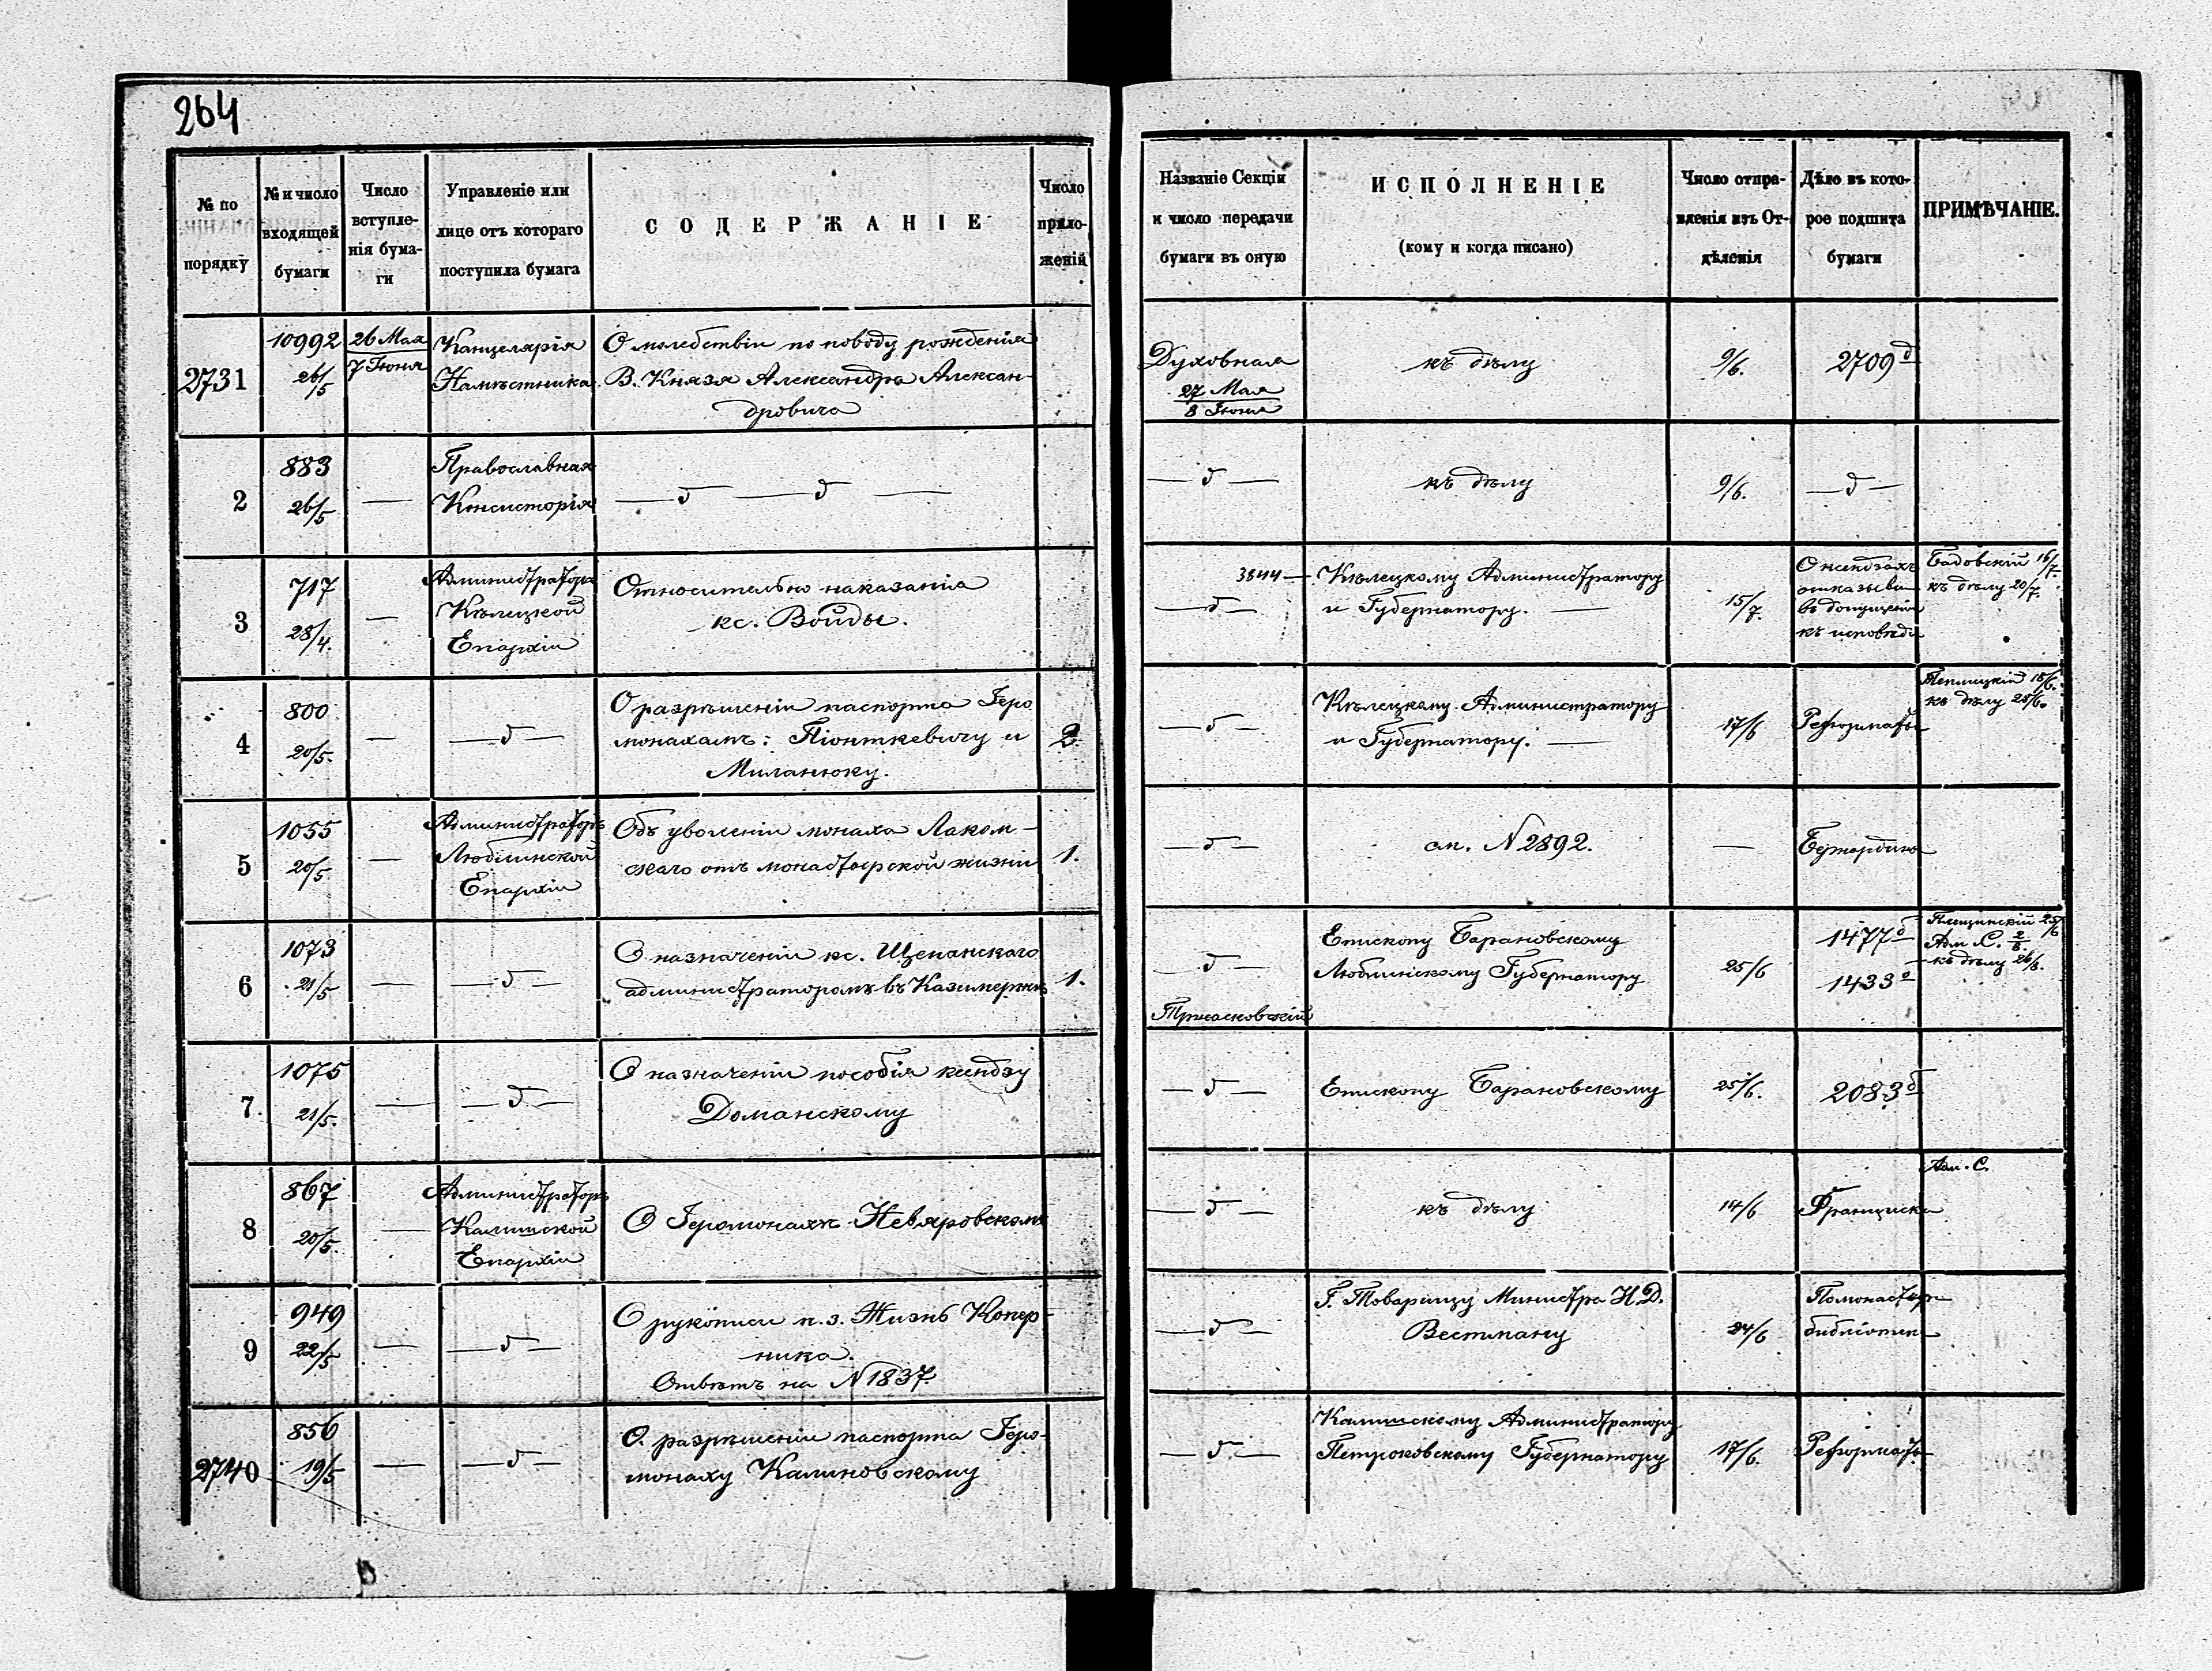 264
№ по порядку
№ и число входящей бумаги
Число вступле-
нія бума-
ги
Управленіе или
лице отъ котораго
поступила бумага
СОДЕРЖАНІЕ
Число
прило-
женій
Названіе Секціи
и число передачи
бумаги въ оную
ИСПОЛНЕНІЕ
(кому и когда писано)
Число отпра-
вленія изъ От-
дѣленія
Дѣло въ кото-
рое подшита
бумаги
ПРИМѢЧАНІЕ.
2731
10992
26/5
26 Мая
7 Іюня
Канцелярія
Намѣстника
О молебствіи по поводу рожденія
В. Князя Александра Алексан-
дровича
Духовная
27 Мая
8 Іюня
къ дѣлу
9/6.
2709 д
2
883
26/5
—
Православная
Консисторія
— д — д —
— д —
къ дѣлу
9/6.
— д —
3
717
28/4.
—
Администратора
Кѣлецкой
Епархіи
Относительно наказанія
кс. Войды.
— д —
3844 — Кѣлецкому Администратору
и Губернатору. —
15/7.
О ксендзахъ
отказыва
въ допущеніи
къ исповѣди
Бадовскій 16/7.
къ дѣлу 20/7.
4
800
20/5.
—
— д —
О разрѣшеніи паспорта Іеро
монахамъ: Піонткевичу и
Миланюку.
2
— д —
Кѣлецкому Администратору
и Губернатору. —
17/6
Реформаты
18/6.
къ дѣлу 28/6.
5
1055
20/5
—
Администраторъ
Люблинской
Епархіи
Объ уволеніи монаха Лаком-
скаго отъ монастырской жизни
1.
— д —
см. № 2892.
—
Бернардины
6
1073
21/5
—
— д —
О назначеніи кс. Щепанскаго
администраторомъ въ Казимержъ
1.
— д —
Епископу Барановскому
Люблинскому Губернатору
25/6
1477 д
1433 д
25/6
Адм С. 2/8.
къ дѣлу 26/8.
7.
1075
21/5.
—
— д —
О назначеніи пособія ксендзу
Доманскому
— д —
Епископу Барановскому
25/6.
2083 д
8
867
20/5.
—
Администраторъ
Калишской
Епархіи
О Іеромонахѣ Невяровскомъ
— д —
къ дѣлу
14/6
Франциск
Адм. С.
9
949
22/5
—
— д —
О рукописи п. з. Жизнь Копер-
ника.
Отвѣтъ на № 1837.
— д —
Г. Товарищу Министра И.Д.
Вестману
24/6
Помонастыр
библіотек
2740
856
19/5
—
— д —
О разрѣшеніи паспорта Іеро-
монаху Калиновскому
— д —
Калишскому Администратору
Петроковскому Губернатору
17/6.
Реформаты